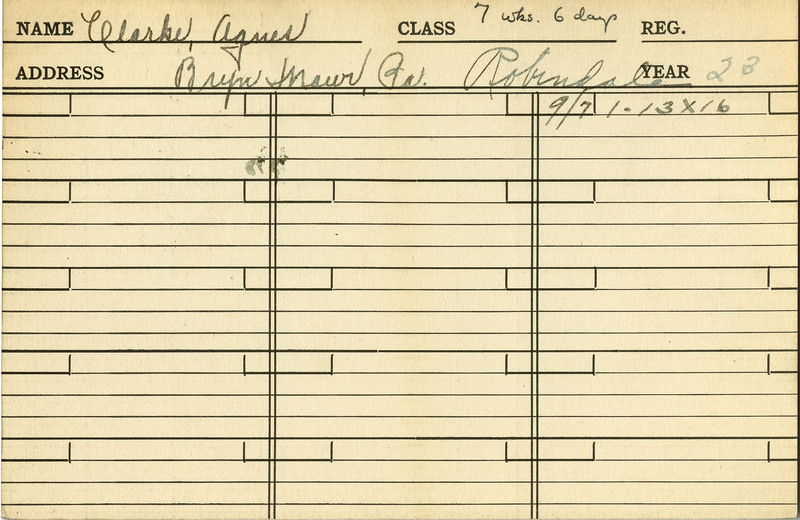 NAME Clarke, Agnes CLASS 7 wks. 6 days REG.
ADDRESS Bryn Mawr, Pa. Robindale YEAR 23
9/7 1-13X16